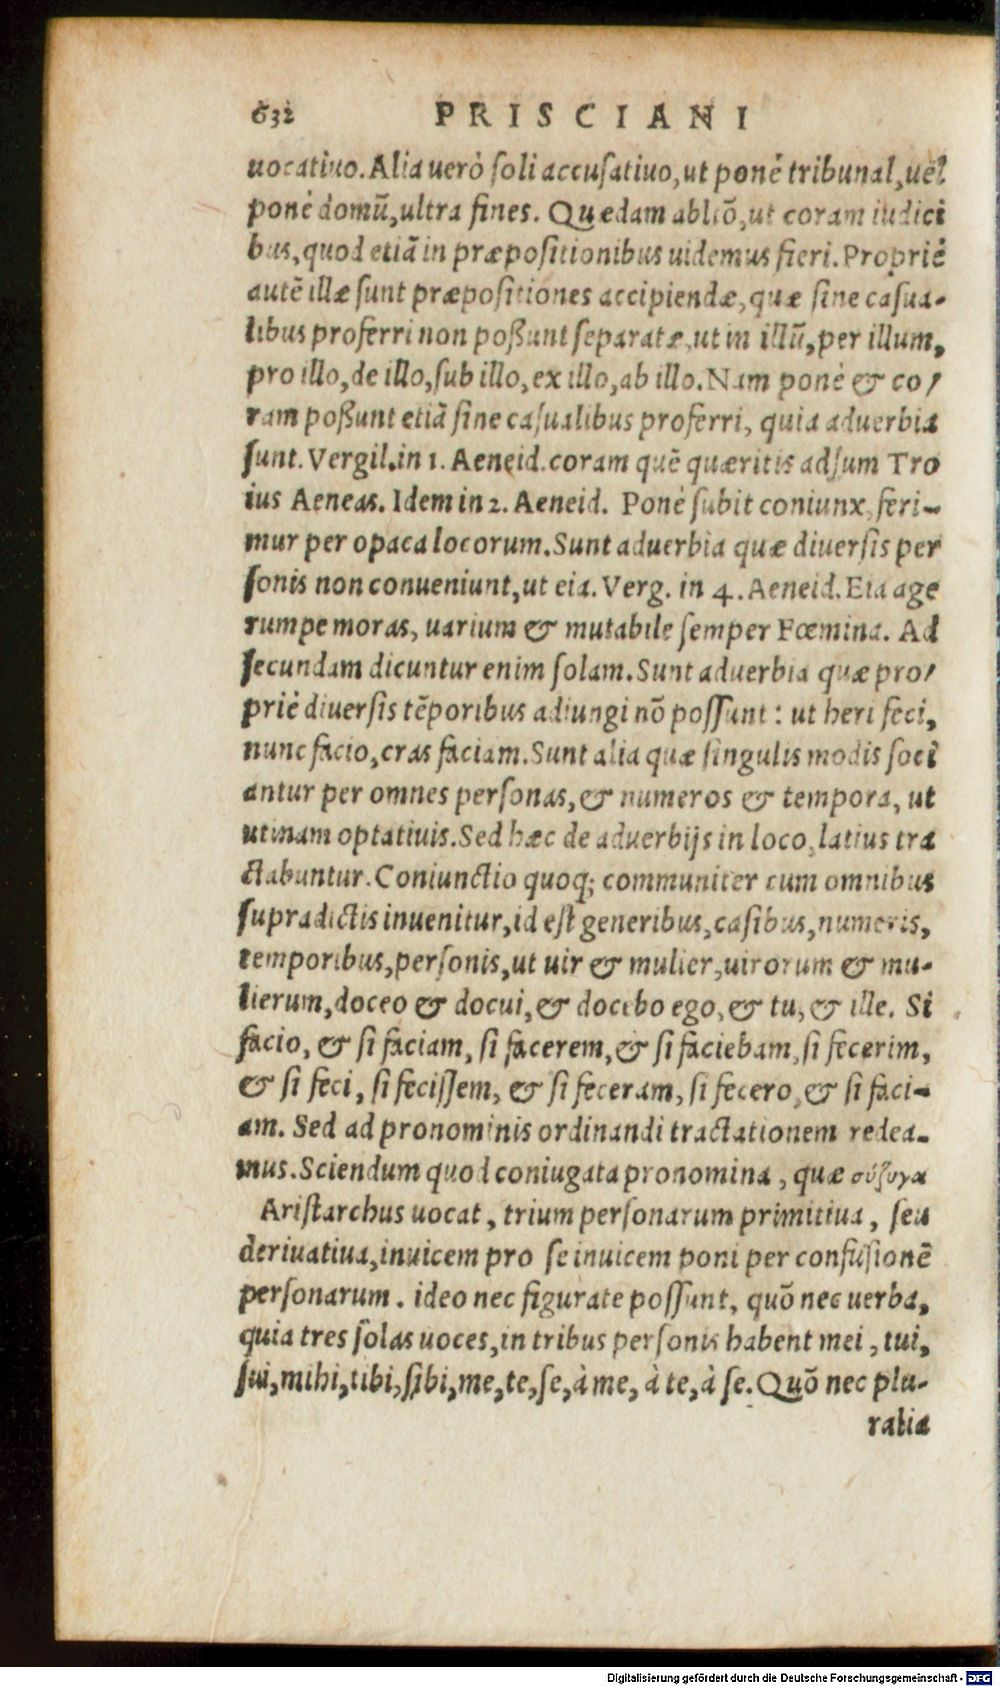 632 PRISCIANI
uocatiuo. Alia uerò soli accusatiuo, ut ponè tribunal, uel
ponè domū, ultra fines. Quędam ablīõ, ut coram iudici
bus, quod etiā in præpositionibus uidemus fieri. Propriè
autē illæ sunt præpositiones accipiendæ, quæ sine casua-
libus proferri non poßunt separatæ, ut in illū, per illum,
pro illo, de illo, sub illo, ex illo, ab illo. Nam ponè & co/
ram poßunt etiā sine casualibus proferri, quia aduerbia
sunt. Vergil. in 1. Aeneid. coram quē quæritis adsum Tro
ius Aeneas. Idem in 2. Aeneid. Ponè subit coniunx, feri-
mur per opaca locorum. Sunt aduerbia quæ diuersis per
sonis non conueniunt, ut eia. Verg. in 4. Aeneid. Eia age
rumpe moras, uarium & mutabile semper Fœmina. Ad
secundam dicuntur enim solam. Sunt aduerbia quæ pro/
priè diuersis tēporibus adiungi nō possunt: ut heri feci,
nunc facio, cras faciam. Sunt alia quæ singulis modis soci
antur per omnes personas, & numeros & tempora, ut
utinam optatiuis. Sed hæc de aduerbijs in loco, latius tra
ctabuntur. Coniunctio quoq; communiter cum omnibus
supradictis inuenitur, id est generibus, casibus, numeris,
temporibus, personis, ut uir & mulier, uirorum & mu-
lierum, doceo & docui, & docebo ego, & tu, & ille. Si
facio, & si faciam, si facerem, & si faciebam, si fecerim,
& si feci, si fecissem, & si feceram, si fecero, & si faci-
am. Sed ad pronominis ordinandi tractationem redea-
mus. Sciendum quod coniugata pronomina, quæ σύζυγα
Aristarchus uocat, trium personarum primitiua, seu
deriuatiua, inuicem pro se inuicem poni per confusionē
personarum. ideo nec figurate possunt, quō nec uerba,
quia tres solas uoces, in tribus personis habent mei, tui,
sui, mihi, tibi, sibi, me, te, se, à me, à te, à se. Quō nec plu-
ralia
Digitalisierung gefördert durch die Deutsche Forschungsgemeinschaft - DFG